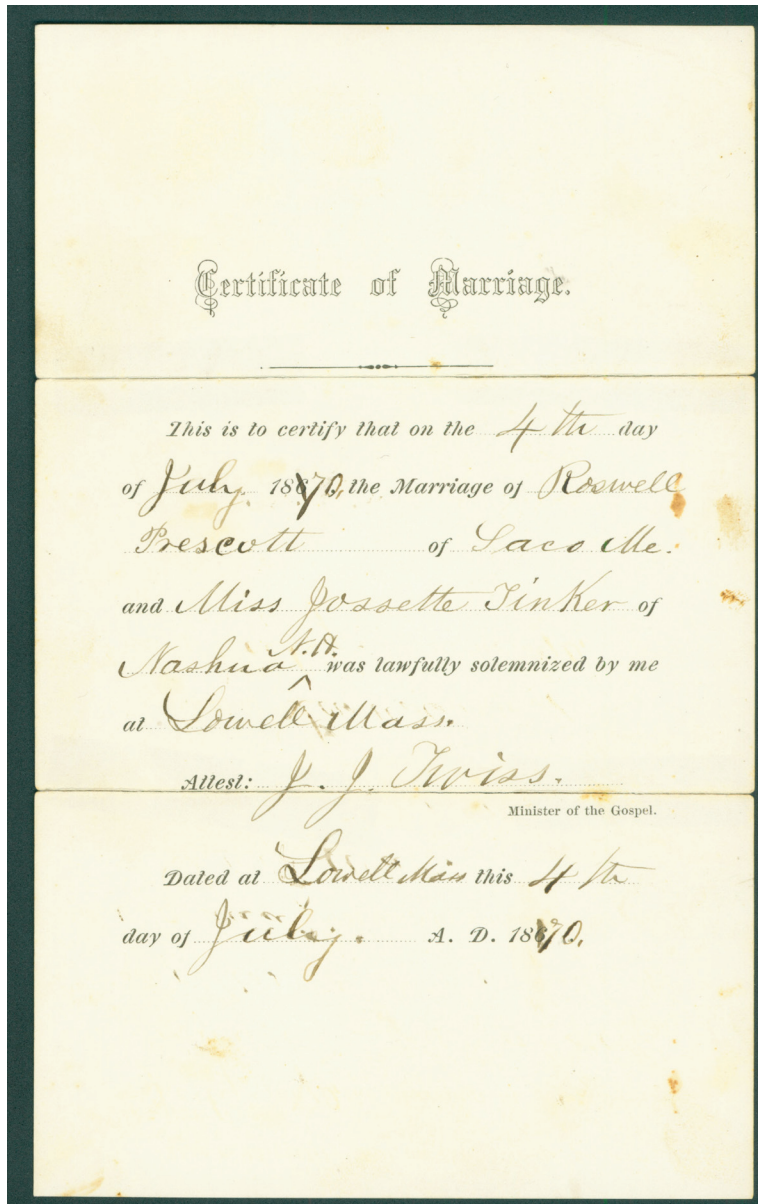 Certificate of Marriage.
This is to certify that on the 4th day
of July 1870, the Marriage of Roswell
Prescott of Saco Me.
and Miss Jossette Tinker of
Nashua N.H. was lawfully solemnized by me
at Lowell Mass.
Attest: J. J. Twiss.
Minister of the Gospel.
Dated at Lowell Mass this 4th
day of July. A. D. 1870.